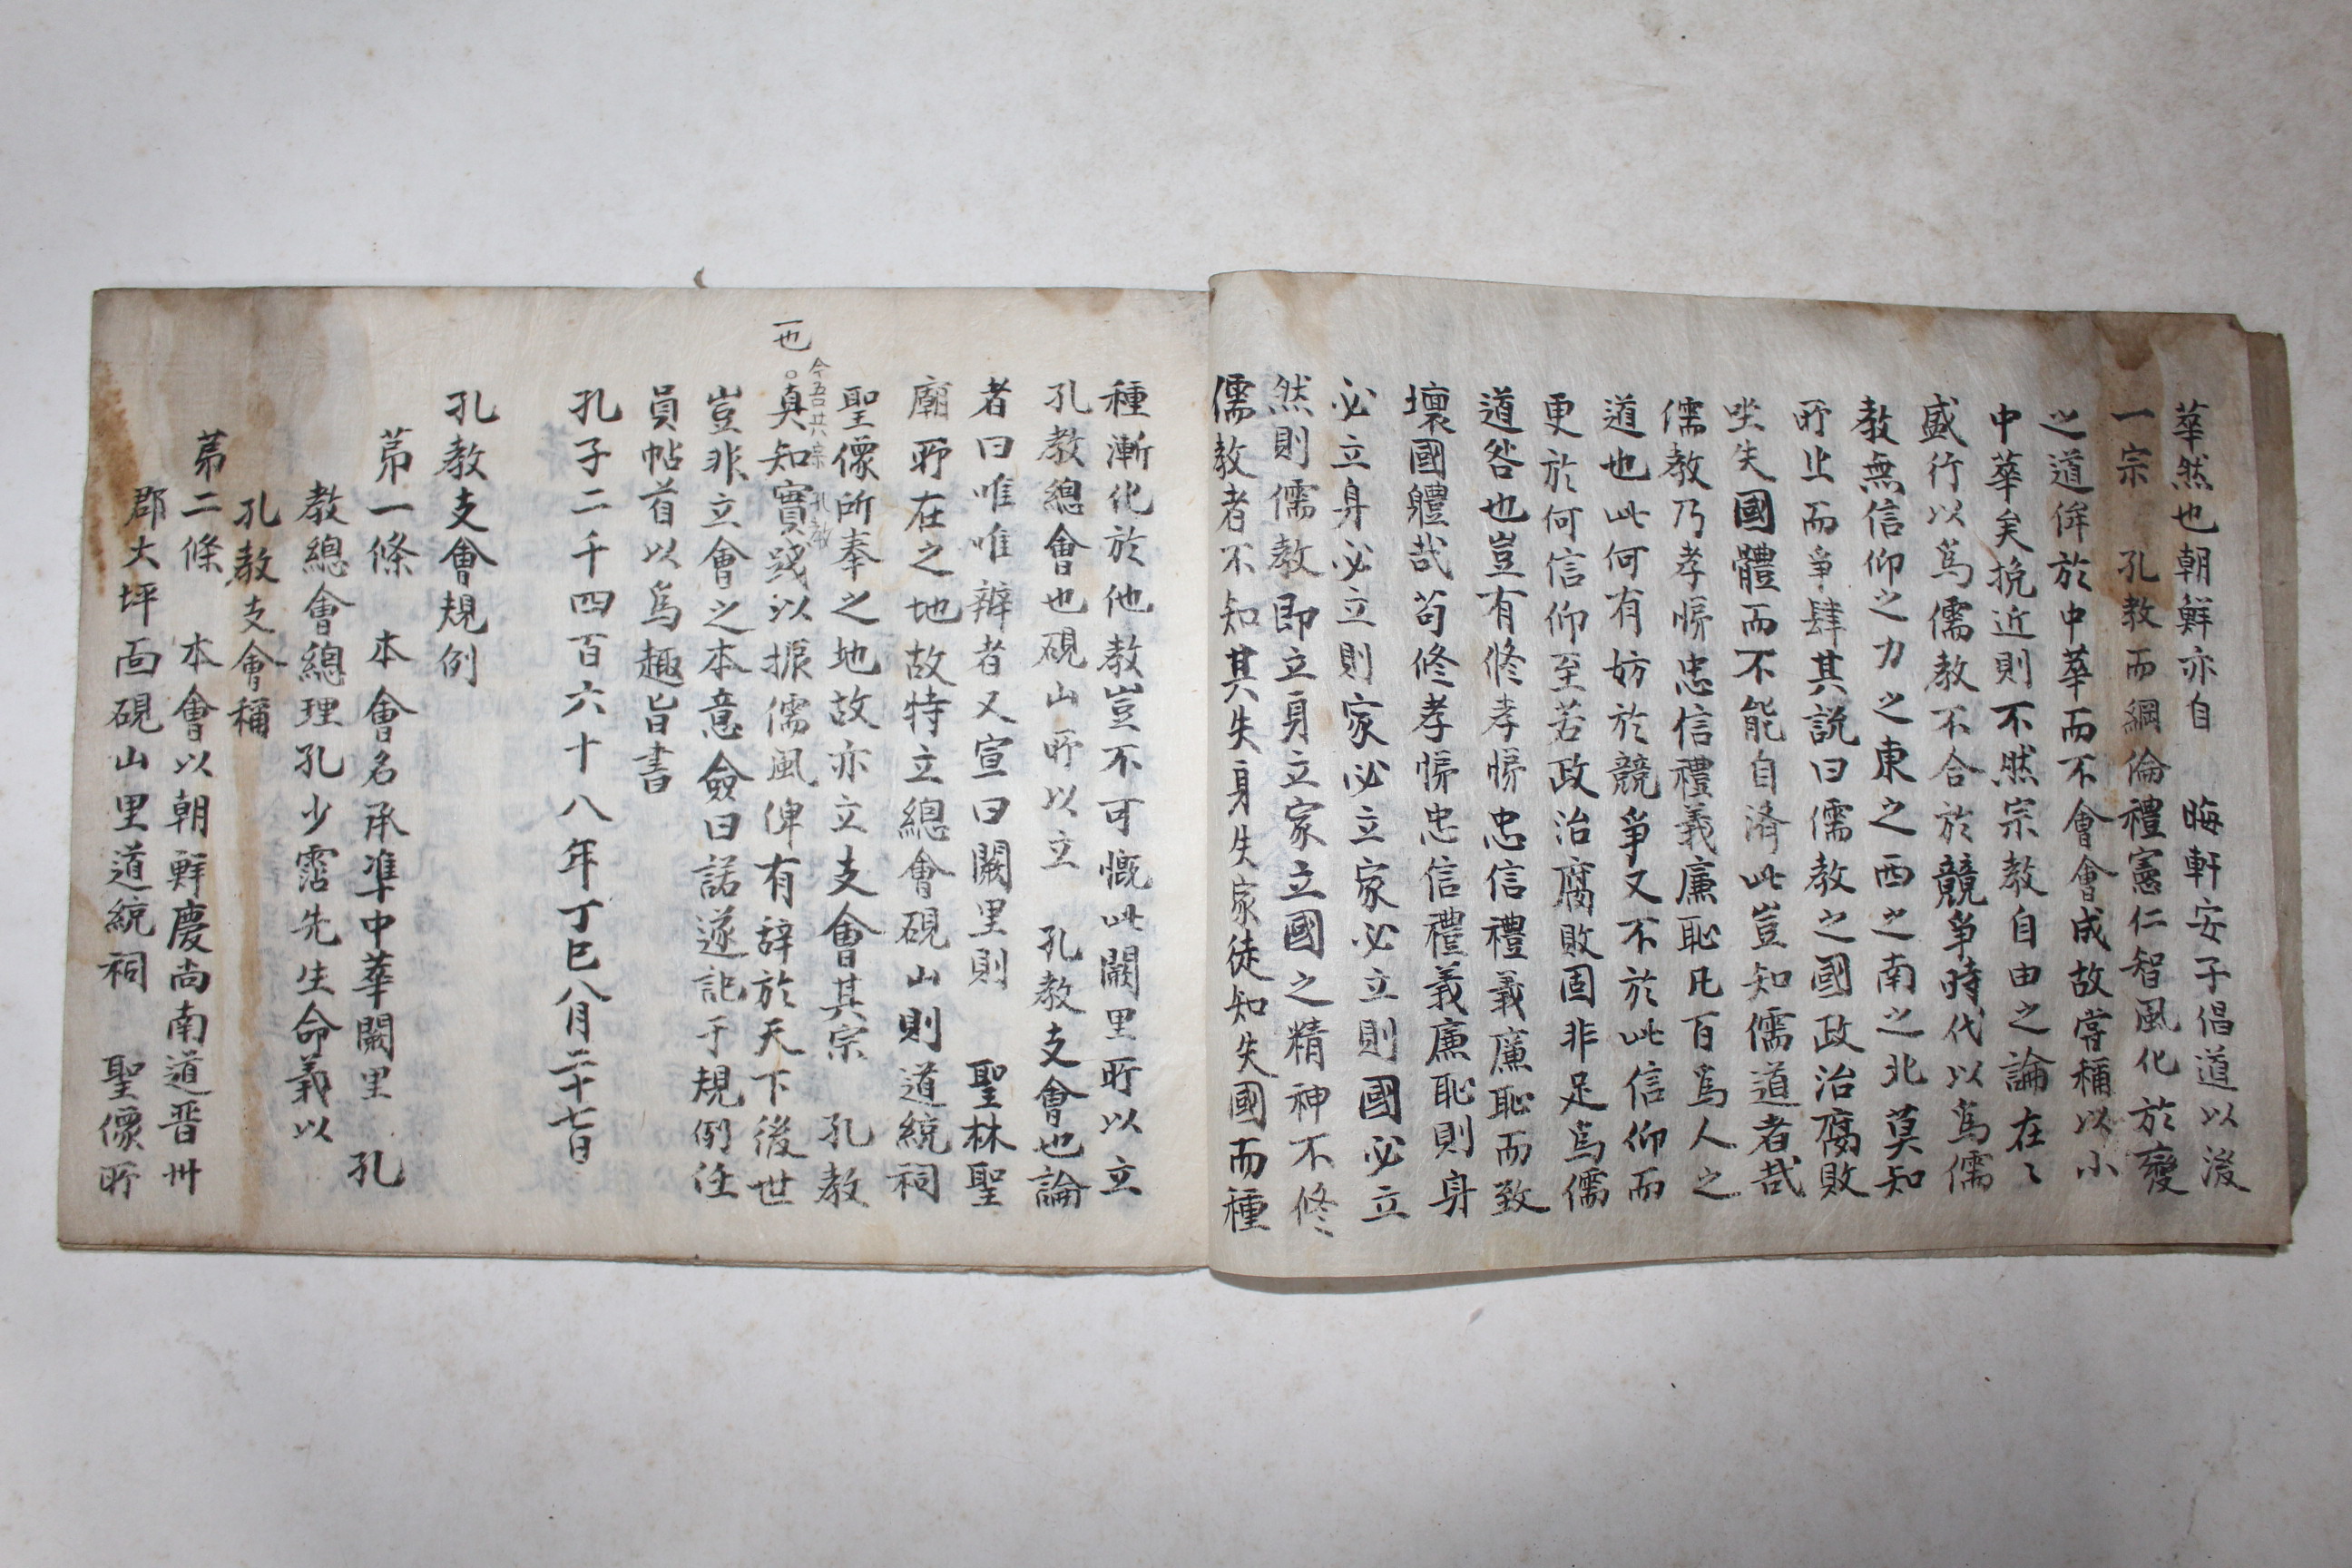 華然也朝鮮亦自 晦軒安子倡道以後
一宗 孔教而綱倫禮憲仁智風化於變
之道侔於中華而不會會成故嘗稱以小
中華矣挽近則不然宗教自由之論在々
盛行以爲儒教不合於競爭時代以爲儒
教無信仰之力之東之西之南之北莫知
所止而爭肆其說曰儒教之國政治腐敗
坐失國體而不能自濟此豈知儒道者哉
儒教乃孝悌忠信禮義廉恥凡百爲人之
道也此何有妨於競爭又不於此信仰而
更於何信仰至若政治腐敗固非足爲儒
道咎也豈有修孝悌忠信禮義廉恥而致
壞國體哉苟修孝悌忠信禮義廉恥則身
必立身必立則家必立家必立則國必立
然則儒教即立身立家立國之精神不修
儒教者不知其失身失家徒知失國而種
種漸化於他教豈不可慨此闕里所以立
孔教總會也硯山所以立 孔教支會也論
者曰唯唯辯者又宣曰闕里則 聖林聖
廟所在之地故特立總會硯山則道統祠
聖像所奉之地故亦立支會其宗 孔教
一也
今吾共宗 孔教
○真知實踐以振儒風俾有辞於天下後世
豈非立會之本意僉曰諾遂記于規例任
員帖首以爲趣旨書
孔子二千四百六十八年丁巳八月二十七日
孔教支會規例
苐一條 本會名承準中華闕里 孔
教總會總理孔少霑先生命義以
孔教支會稱
苐二條 本會以朝鮮慶尚南道晋州
郡大坪面硯山里道統祠 聖像所